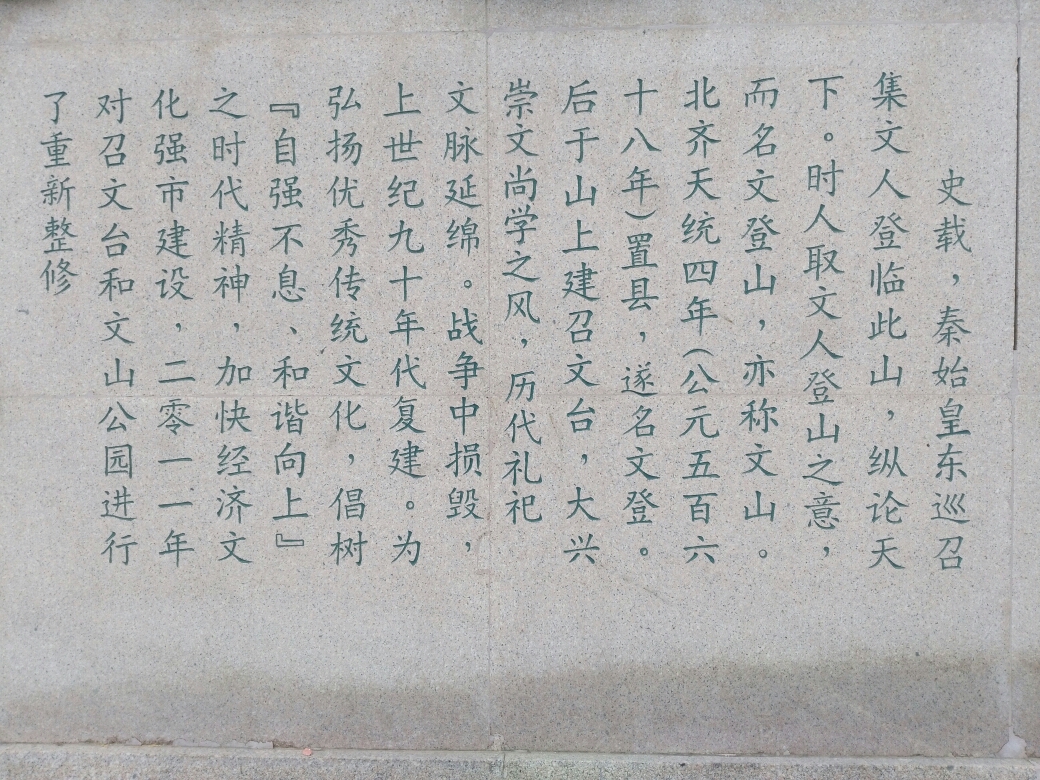 史载，秦始皇东巡召
集文人登临此山，纵论天
下。时人取文人登山之意，
而名文登山，亦称文山。
北齐天统四年（公元五百六
十八年）置县，遂名文登。
后于山上建召文台，大兴
崇文尚学之风，历代礼祀
文脉延绵。战争中损毁，
上世纪九十年代复建。为
弘扬优秀传统文化，倡树
『自强不息、和谐向上』
之时代精神，加快经济文
化强市建设，二零一一年
对召文台和文山公园进行
了重新整修